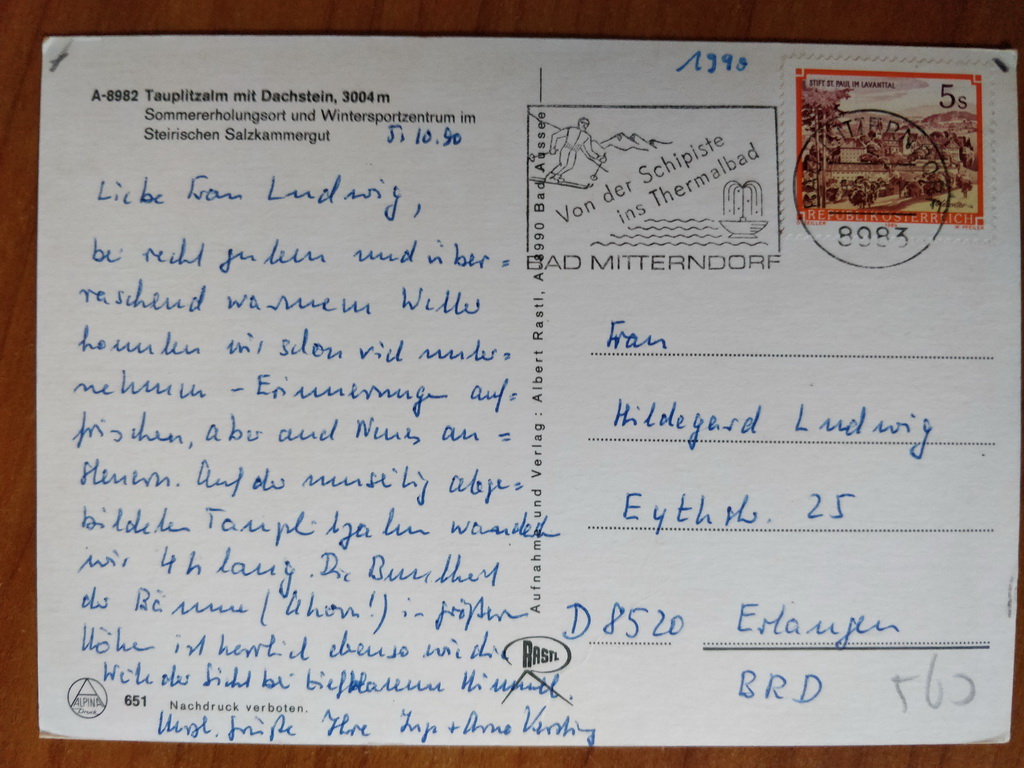 1990
A-8982 Tauplitzalm mit Dachstein, 3004 m
Sommererholungsort und Wintersportzentrum im
Steirischen Salzkammergut
5.10.90
Liebe Frau Ludwig,
bei recht gutem und über=
raschend warmem Wetter
konnten wir schon viel unter=
nehmen - Erinnerungen auf=
frischen, aber auch Neues an=
steuern. Auf der umseitig abge=
bildeten Tauplitzalm wanderten
wir 4 h lang. Die Buntheit
der Bäume (Ahorn!) in größeren
Höhen ist herrlich ebenso wie die
Weite der Sicht bei tiefblauem Himmel.
Herzl. Grüße Ihre
651
Nachdruck verboten.
ALPINA
Druck
Aufnahme und Verlag: Albert Rastl, A-8990 Bad Aussee
RASTL
Von der Schipiste
ins Thermalbad
BAD MITTERNDORF
STIFT ST. PAUL IM LAVANTTAL
5 S
REPUBLIK ÖSTERREICH
8983
Frau
Hildegard Ludwig
Eythstr. 25
D 8520 Erlangen
BRD